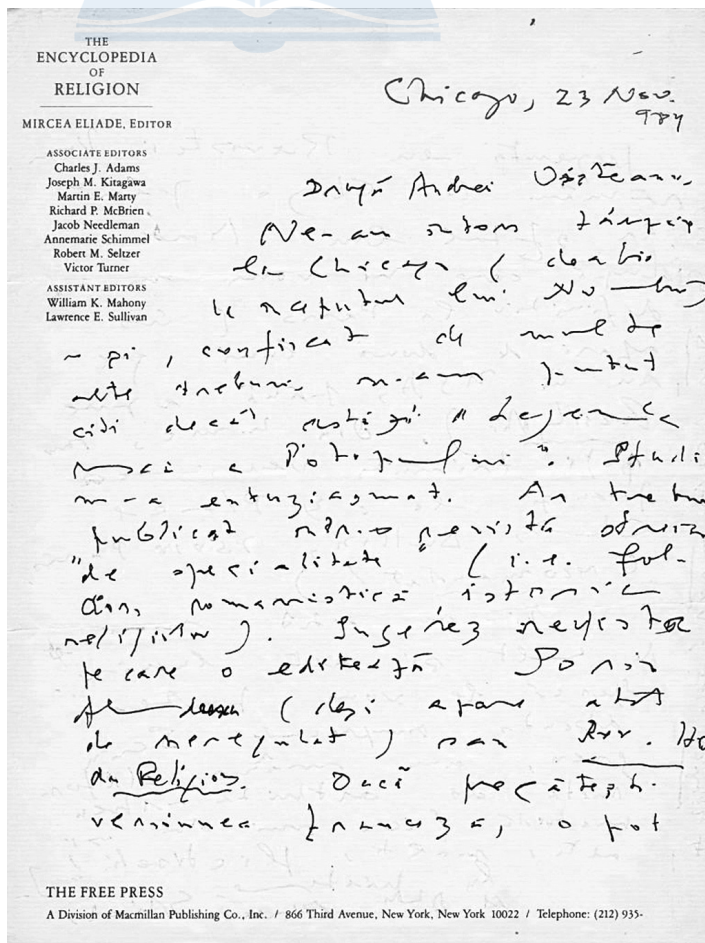 THE
ENCYCLOPEDIA
OF
RELIGION
MIRCEA ELIADE, EDITOR
ASSOCIATE EDITORS
Charles J. Adams
Joseph M. Kitagawa
Martin E. Marty
Richard P. McBrien
Jacob Needleman
Annemarie Schimmel
Robert M. Seltzer
Victor Turner
ASSISTANT EDITORS
William K. Mahony
Lawrence E. Sullivan
Chicago, 23 Nov.
984
Dragă Andrei Oișteanu,
Ne-am întors târziu
la Chicago (deabia
la începutul lui
și, confiscat de multe
alte treburi, n-am putut
citi decât astăzi "Legenda
a Potopului". Studi
m-a entuziasmat. Ar trebu
publicat într-o revistă
"de specialitate" (i.e. fol-
clor, romanistică istoria
religiilor). Sugerez revista
pe care o editează
(deși apare atât
de neregulat) sau Rev. H
des Religions. Dacă pregătești
versiunea franceză, o pot
THE FREE PRESS
A Division of Macmillan Publishing Co., Inc. / 866 Third Avenue, New York, New York 10022 / Telephone: (212) 935-